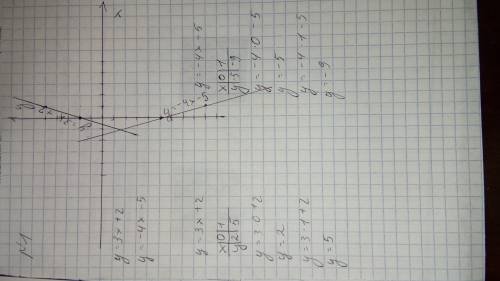 №1
y=3x+2
y=-4x-5
y=3x+2
x|0|1
y|2|5
y=3·0+2
y=2
y=3·1+2
y=5
y=-4x-5
x|0|1
y|5|-9
y=-4·0-5
y=-5
y=-4·1-5
y=-9
y=-4x-5
x